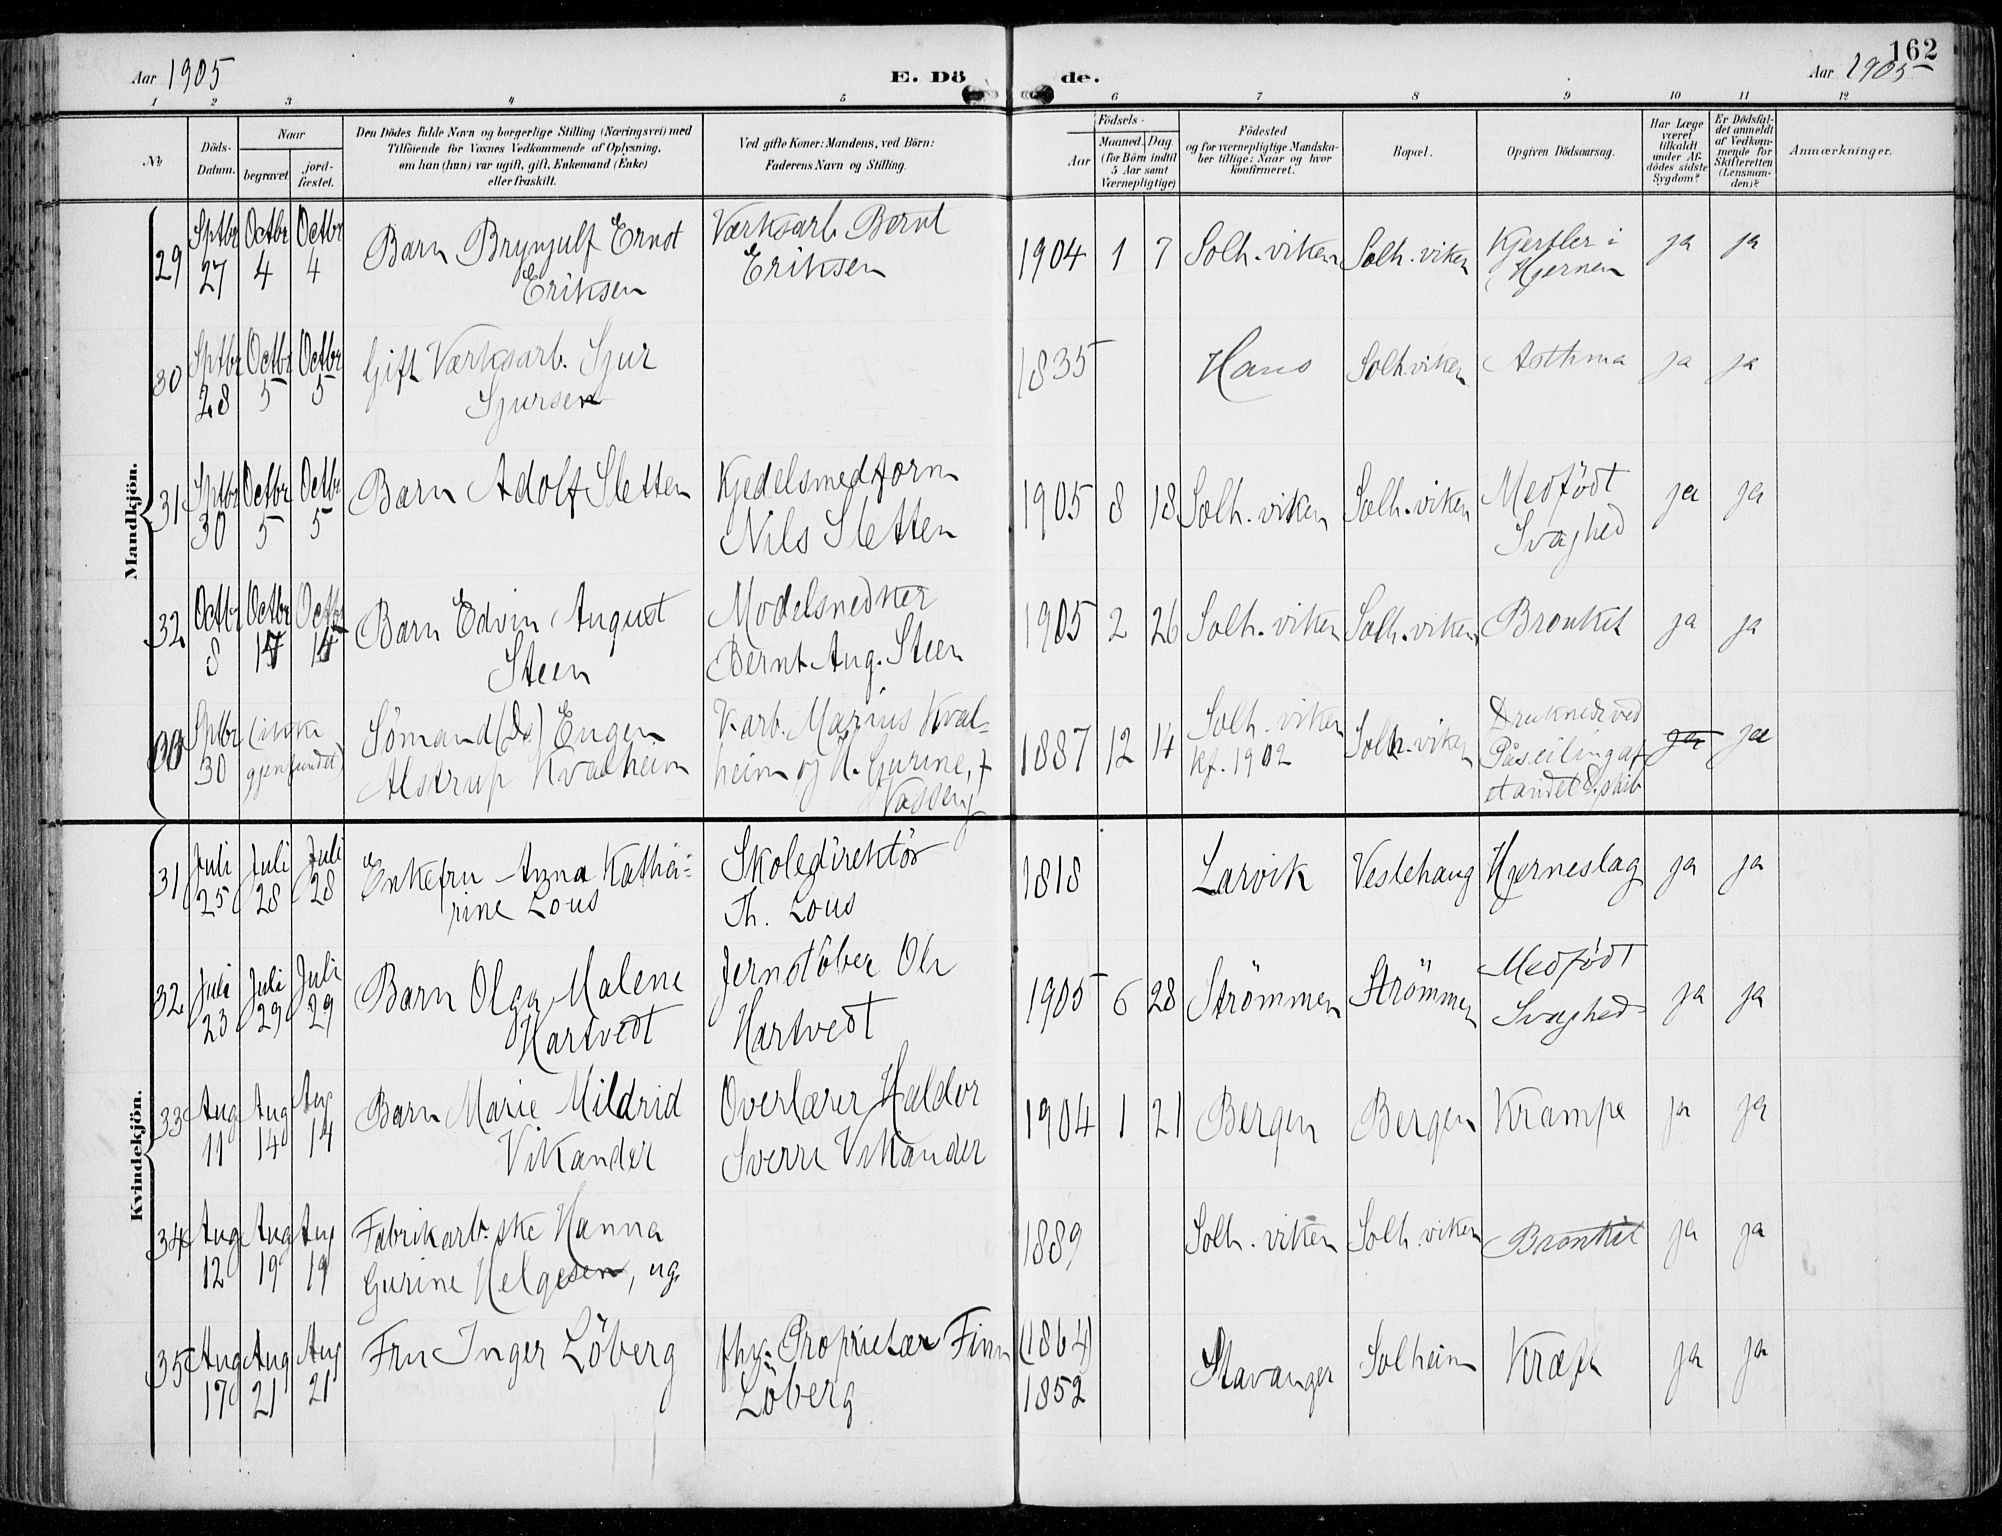 162
Aar 1905
E. Dö
de.
Aar 1905
1 2 3 4 5 6 7 8 9 10 11 12
№
Döds-
Datum.
Naar
begravet.
jord-
fæstet.
Den Dödes fulde Navn og borgerlige Stilling (Næringsvei) med
Tilföiende for Voxnes Vedkommende af Oplysning,
om han (hun) var ugift, gift, Enkemand (Enke)
eller fraskilt.
Ved gifte Koner: Mandens, ved Börn:
Faderens Navn og Stilling.
Födsels-
Aar
Maaned.
Dag.
(for Börn indtil
5 Aar samt
Værnepligtige)
Födested
og for værnepligtige Mandska-
ber tillige: Naar og hvor
konfirmeret.
Bopæl.
Opgiven Dödsaarsag.
Har Læge
været
tilkaldt
under Af-
dödes sidste
Sygdom?
Er Dödsfal-
det anmeldt
af Vedkom-
mende for
Skifteretten
(Lensman-
den)?
Anmærkninger.
Mandkjön.
29 Sptbr 27 Octbr 4 Octbr 4 Barn Brynjulf Ernst Værksarb. Bernt 1904 1 7 Solh.viken Solh.viken Kjertler i ja ja
Eriksen Eriksen Hjernen
30 Sptbr 28 Octbr 5 Octbr 5 Gift Værksarb. Sjur 1835 Hans Solh.viken Asthma ja ja
Sjursen
31 Sptbr 30 Octbr 5 Octbr 5 Barn Adolf Sletten Kjedelsmedform 1905 8 18 Solh.viken Solh.viken Medfödt ja ja
Nils Sletten Svaghed
32 Octbr 8 Octbr Octbr Barn Edvin August Modelsnedker 1905 2 26 Solh.viken Solh.viken Bronkit ja ja
Steen Bernt Aug. Steen
33 Sptbr 30 (ikke Sömand (Ds) Eugen V.arb. Marius Kval= 1887 12 14 Solh.viken Solh.viken Druknede ved ja ja
gjenfundet) Alstrup Kvalheim heim og H. Gurine, f kf. 1902 Påseiling af
Vasseng et andet D.skib
Kvindekjön.
31 Juli 25 Juli 28 Juli 28 Enkefru Anna Katha= Skoledirektör 1818 Larvik Vestehaug Hjerneslag ja ja
rine Lous Th. Lous
32 Juli 23 Juli 29 Juli 29 Barn Olga Malene Jernstöber Ole 1905 6 28 Strömmen Strömmen Medfödt ja ja
Hartvedt Hartvedt Svaghed
33 Aug 11 Aug 14 Aug 14 Barn Marie Mildrid Overlærer Haldor 1904 1 21 Bergen Bergen Krampe ja ja
Vikander Sverre Vikander
34 Aug 12 Aug 19 Aug 19 Fabrikarb.ske Hanna 1889 Solh.viken Solh.viken Bronkit ja ja
Gurine Helgesen, ug.
35 Aug 17 Aug 21 Aug 21 Fru Inger Löberg fhv. Proprietær Finn (1864) Stavanger Solheim Kræft ja ja
Löberg 1852